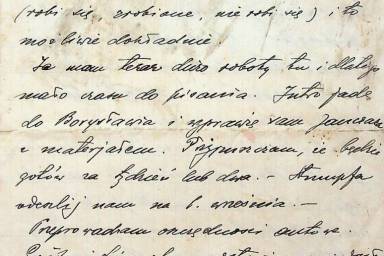 (robi się, zrobione, nie robi się) i to
możliwie dokładnie.
Ja mam teraz dużo roboty tu i dlatego
mało czasu do pisania. Jutro jadę
do Borysławia i wyprawię vam
z materjałem. Przypuszczam, że będzie
gotów za tydzień lub dwa. – Stumpfa
odeślij nam na 1. września. –
Przeprowadzam oszczędności